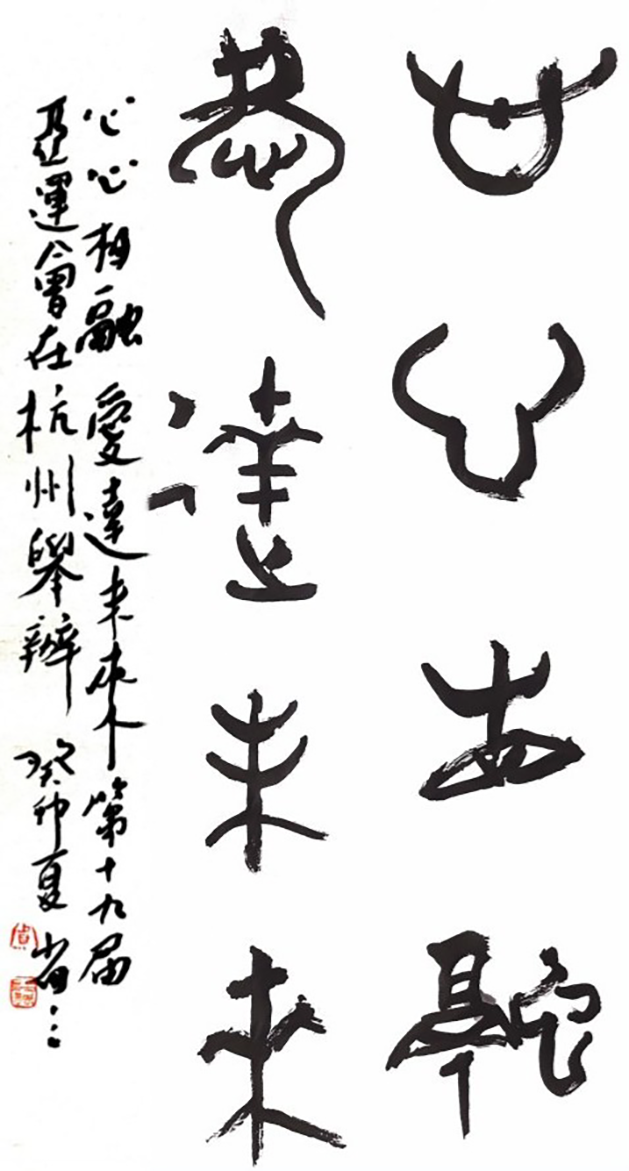 心心相融
愛達未來
心心相融 愛達未來 第十九屆
亞運會在杭州舉辦 癸卯夏